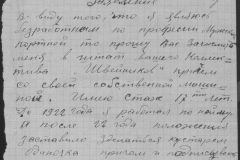 Заявление
В виду того, что я являюсь
безработным по профессии Мужской
портной то прошу Вас зачислить
меня в штат вашего Коллек-
тива. "Швейников" причем
со своей собственной маши-
ной. Имею Стаж 18 лет.
До 1922 года я работал по найму
а после 22 года положение
заставило сделаться кустарем
одиночка причем